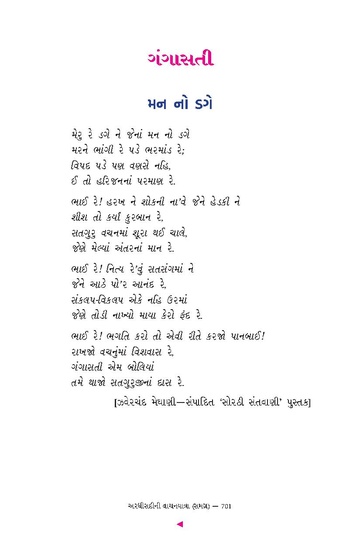 ગંગાસતી
મન નો ડગે
મેરુ રે ડગે ને જેનાં મન નો ડગે
મરને ભાંગી રે પડે ભરમાંડ રે;
વિપદ પડે પણ વણસે નહિ,
ઈ તો હરિજનનાં પરમાણ રે.
ભાઈ રે! હરખ ને શોકની ના'વે જેને હેડકી ને
શીશ તો કર્યાં કુરબાન રે,
સતગુરુ વચનમાં શૂરા થઈ ચાલે,
જેણે મેલ્યાં અંતરનાં માન રે.
ભાઈ રે! નિત્ય રે'વું સતસંગમાં ને
જેને આઠે પો'ર આનંદ રે,
સંકલપ-વિકલપ એકે નહિ ઉરમાં
જેણે તોડી નાખ્યો માયા કેરો ફંદ રે.
ભાઈ રે! ભગતિ કરો તો એવી રીતે કરજો પાનબાઈ!
રાખજો વચનુંમાં વિશવાસ રે,
ગંગાસતી એમ બોલિયાં
તમે થાજો સતગુરુજીનાં દાસ રે.
[ઝવેરચંદ મેઘાણી—સંપાદિત ‘સોરઠી સંતવાણી’ પુસ્તક]
અરધીસદીની વાચનયાત્રા (સમગ્ર) — 701